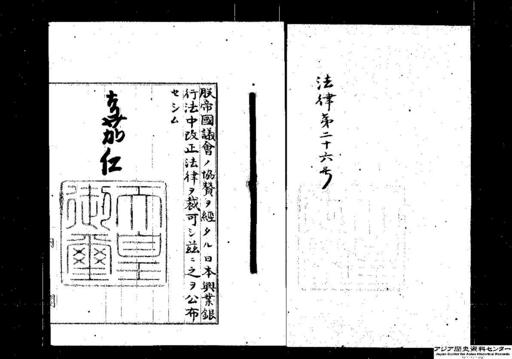 法律第二十六号
朕帝國議會ノ協賛ヲ經タル日本興業銀
行法中改正法律ヲ裁可シ茲ニ之ヲ公布
セシム
嘉仁
天皇
御璽
アジア歴史資料センター
Japan Center for Asian Historical Records